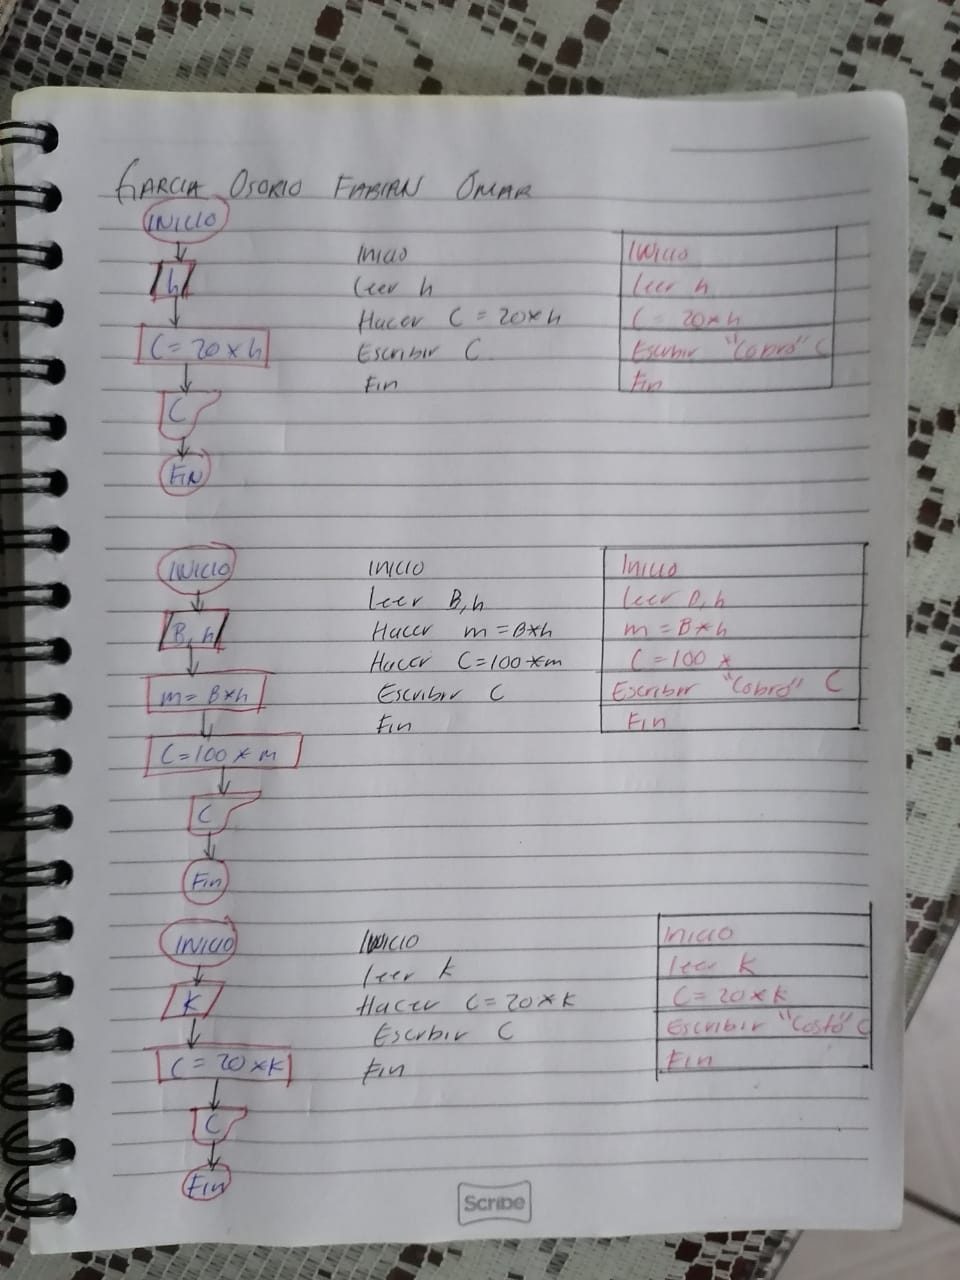 GARCIA OSORIO FABIAN OMAR
INICIO
h
C = 20 * h
C
FIN
Inicio
Leer h
Hacer C = 20*h
Escribir C
Fin
INICIO
Leer h
C = 20*h
Escribir "Cobro" C
Fin
INICIO
B, h
m = B*h
C=100 * m
C
Fin
INICIO
Leer B,h
Hacer m = B*h
Hacer C=100*m
Escribir C
Fin
Inicio
Leer B,h
m = B*h
C = 100 *
Escribir "Cobro" C
Fin
INICIO
K
C = 20*K
C
Fin
INICIO
Leer K
Hacer C=20*K
Escribir C
Fin
Inicio
Leer K
C= 20*K
Escribir "Costo" C
Fin
Scribe